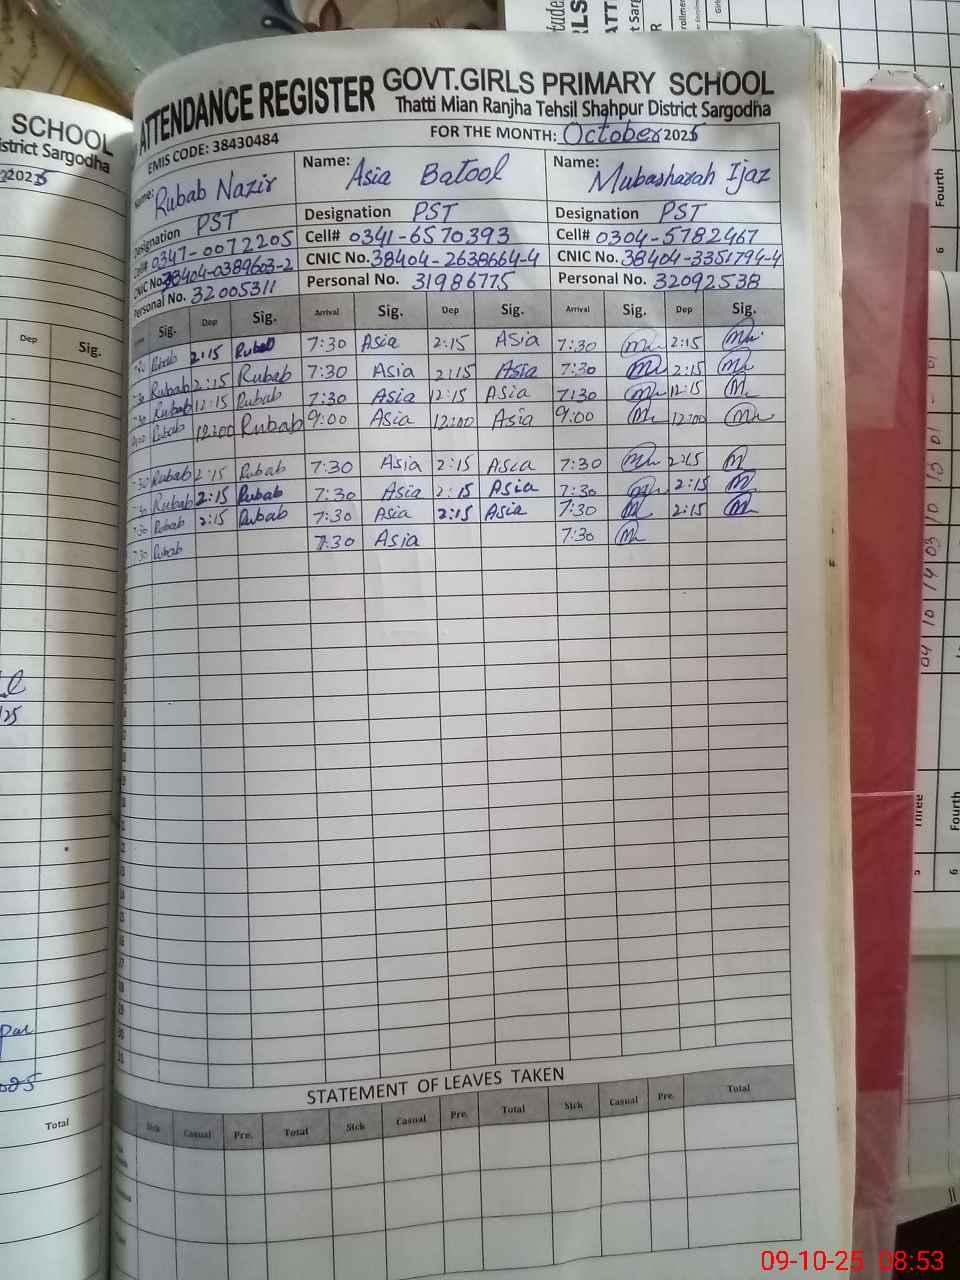 ATTENDANCE REGISTER GOVT.GIRLS PRIMARY SCHOOL
Thatti Mian Ranjha Tehsil Shahpur District Sargodha
EMIS CODE: 38430484 FOR THE MONTH: October 2025
Name: Rubab Nazir Name: Asia Batool Name: Mubasharah Ijaz
Designation PST Designation PST Designation PST
Cell# 0347-0072205 Cell# 0341-6570393 Cell# 0304-5782467
CNIC No. 38404-0389603-2 CNIC No. 38404-2638664-4 CNIC No. 38404-3351794-4
Personal No. 32005311 Personal No. 31986775 Personal No. 32092538
Sig. Dep Sig. Arrival Sig. Dep Sig. Arrival Sig. Dep Sig.
Rubab 2:15 Rubab 7:30 Asia 2:15 Asia 7:30 2:15
Rubab 2:15 Rubab 7:30 Asia 2:15 Asia 7:30 2:15
Rubab 12:15 Rubab 7:30 Asia 12:15 Asia 7:30 12:15
Rubab 12:00 Rubab 9:00 Asia 12:00 Asia 9:00 12:00
7:30 Rubab 2:15 Rubab 7:30 Asia 2:15 Asia 7:30 2:15
Rubab 2:15 Rubab 7:30 Asia 2:15 Asia 7:30 2:15
7:30 Rubab 2:15 Rubab 7:30 Asia 2:15 Asia 7:30 2:15
7:30 Rubab 7:30 Asia 7:30
STATEMENT OF LEAVES TAKEN
Sick Casual Pre. Total Sick Casual Pre. Total Sick Casual Pre. Total
SCHOOL
District Sargodha
2025
Dep Sig.
Total
Fourth
6
04 10 14 03 10 13 01 - 01
Three
Fourth
5
6
09-10-25 08:53